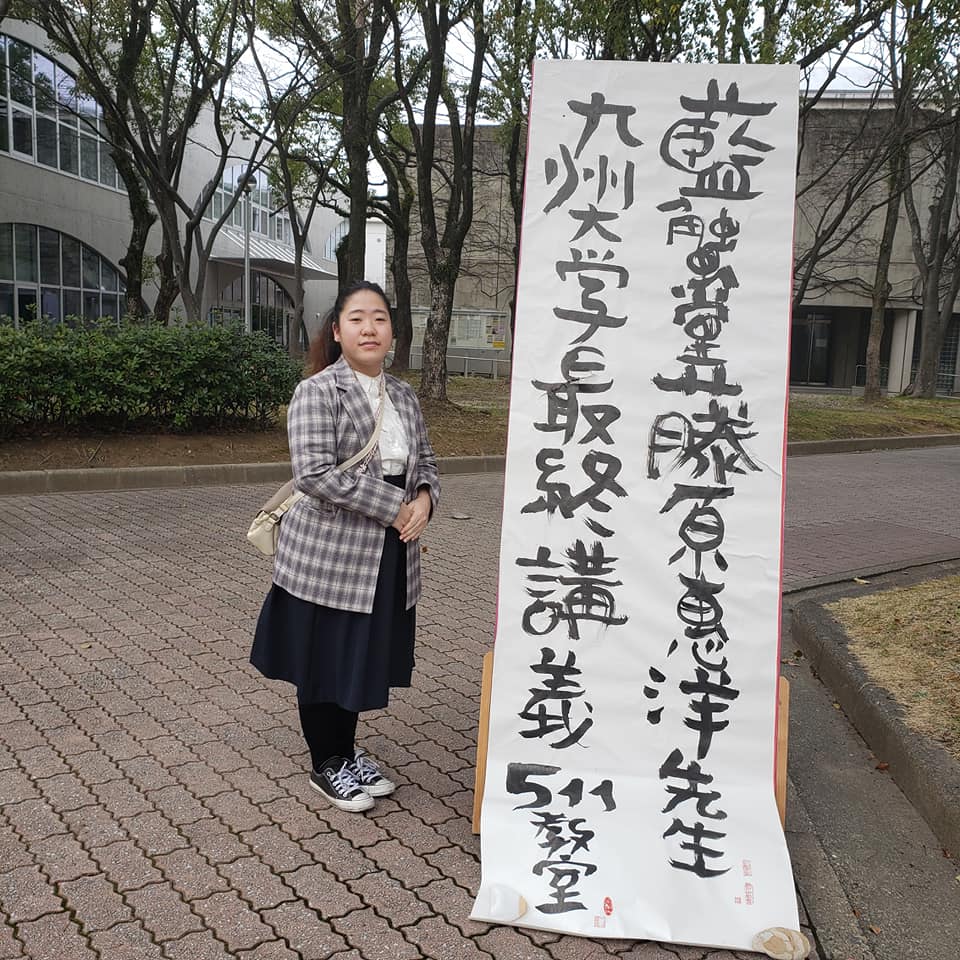 藍蟵堂藤原惠洋先生
九州大学最終講義511教室